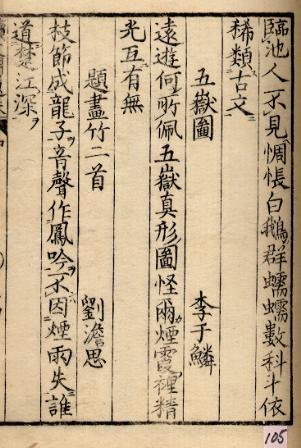 臨池人不見惆悵白鵝群蠕蠕數科斗依
稀類古文
五嶽圖　李于鱗
遠遊何所佩五嶽真形圖怪爾煙霞裡精
光互有無
題畫竹二首　劉澹思
枝節成龍子音聲作鳳吟不因煙雨失誰
道楚江深
105